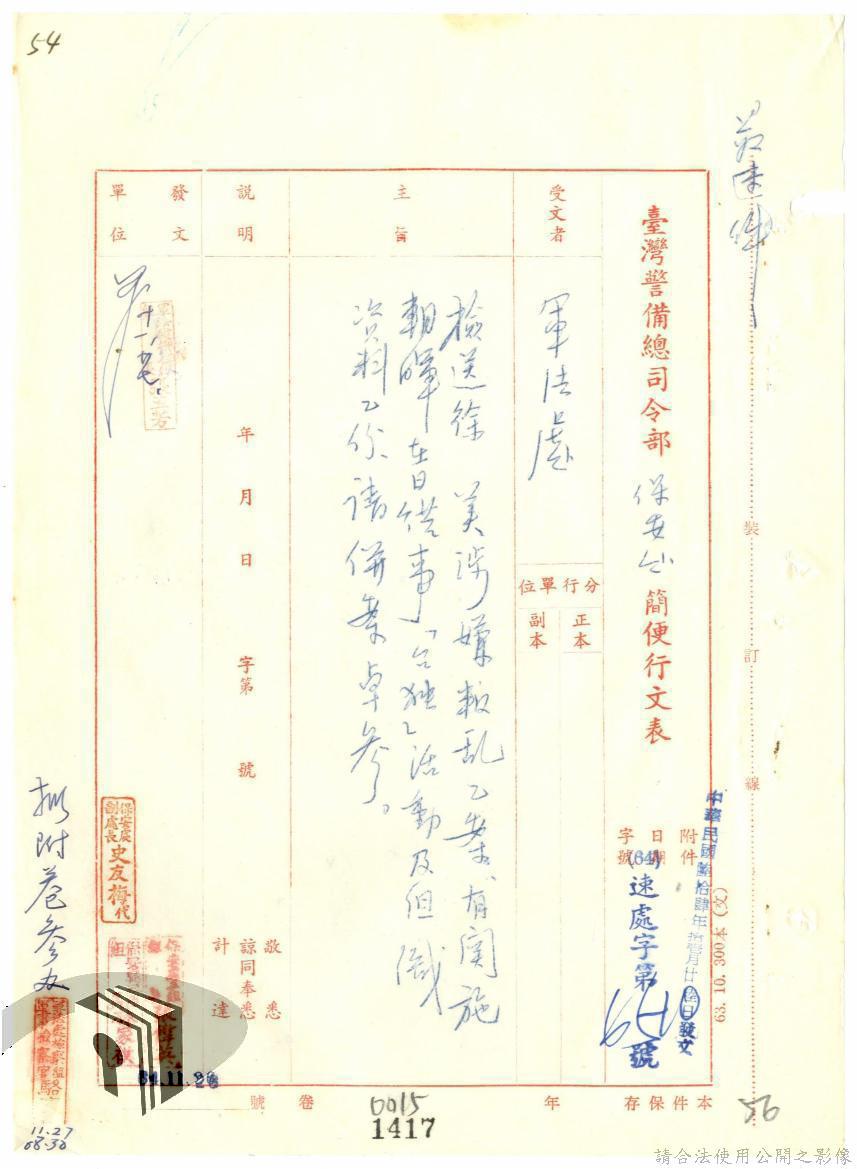 54
最速件
裝
訂
線
臺灣警備總司令部保安處簡便行文表
附件
日期
字號
中華民國陸拾肆年拾壹月廿陸日發文
(64)速處字第
號
63.10.300本(文)
受文者
軍法處
分行單位
正本
副本
主旨
檢送徐 美涉嫌叛乱乙案,有関施
朝暉在日從事「台独」活動及但
資料乙份,請併案卓參。
說明
年 月 日 字第 號
敬悉
諒同奉悉
計達
發文單位
保安處
副處長 史友梅 代
64.11.26
擬附卷參辦
11.27
08.30
本件保存 年 卷 號
0015
1417
56
請合法使用公開之影像